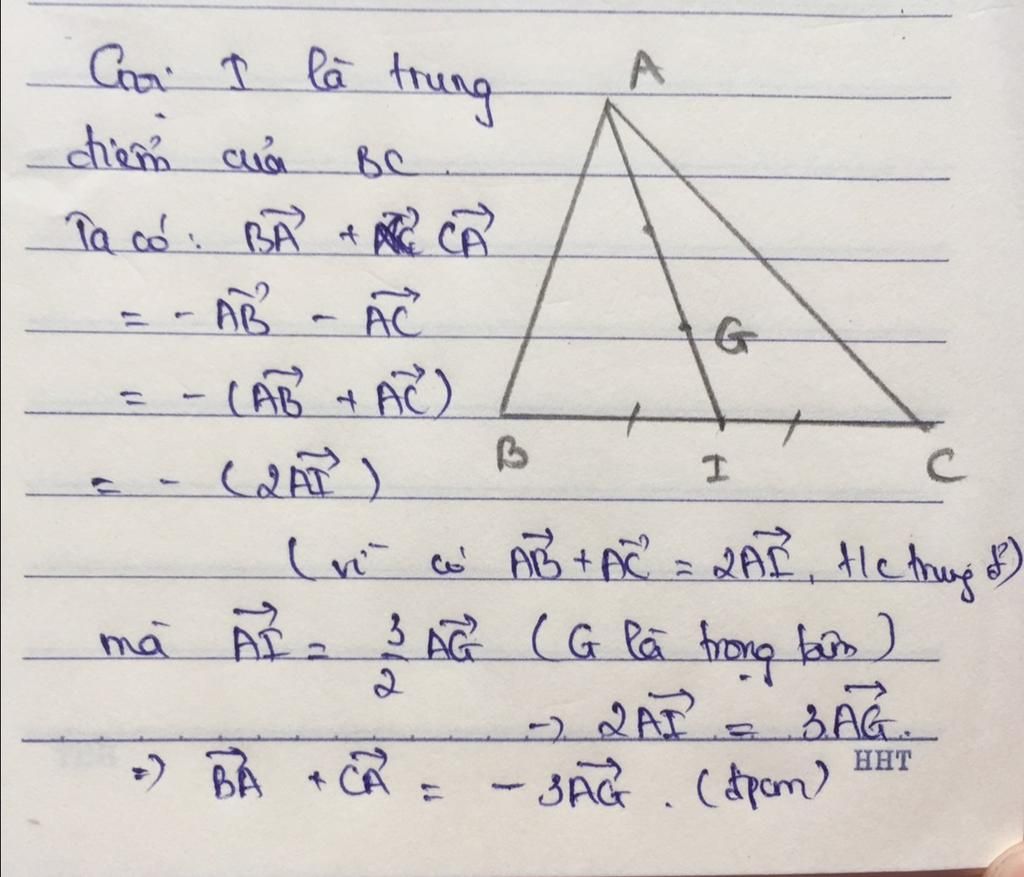 Gọi I là trung
A
điểm của BC.
Ta có: \overrightarrow{BA} + \overrightarrow{CA}
= - \overrightarrow{AB} - \overrightarrow{AC}
G
= - (\overrightarrow{AB} + \overrightarrow{AC})
B I C
= - (2\overrightarrow{AI})
(vì có \overrightarrow{AB} + \overrightarrow{AC} = 2\overrightarrow{AI}, t/c trung đ')
mà \overrightarrow{AI} = \frac{3}{2} \overrightarrow{AG} (G là trọng tâm)
→ 2\overrightarrow{AI} = 3\overrightarrow{AG}.
HHT
⇒ \overrightarrow{BA} + \overrightarrow{CA} = - 3\overrightarrow{AG}. (đpcm)